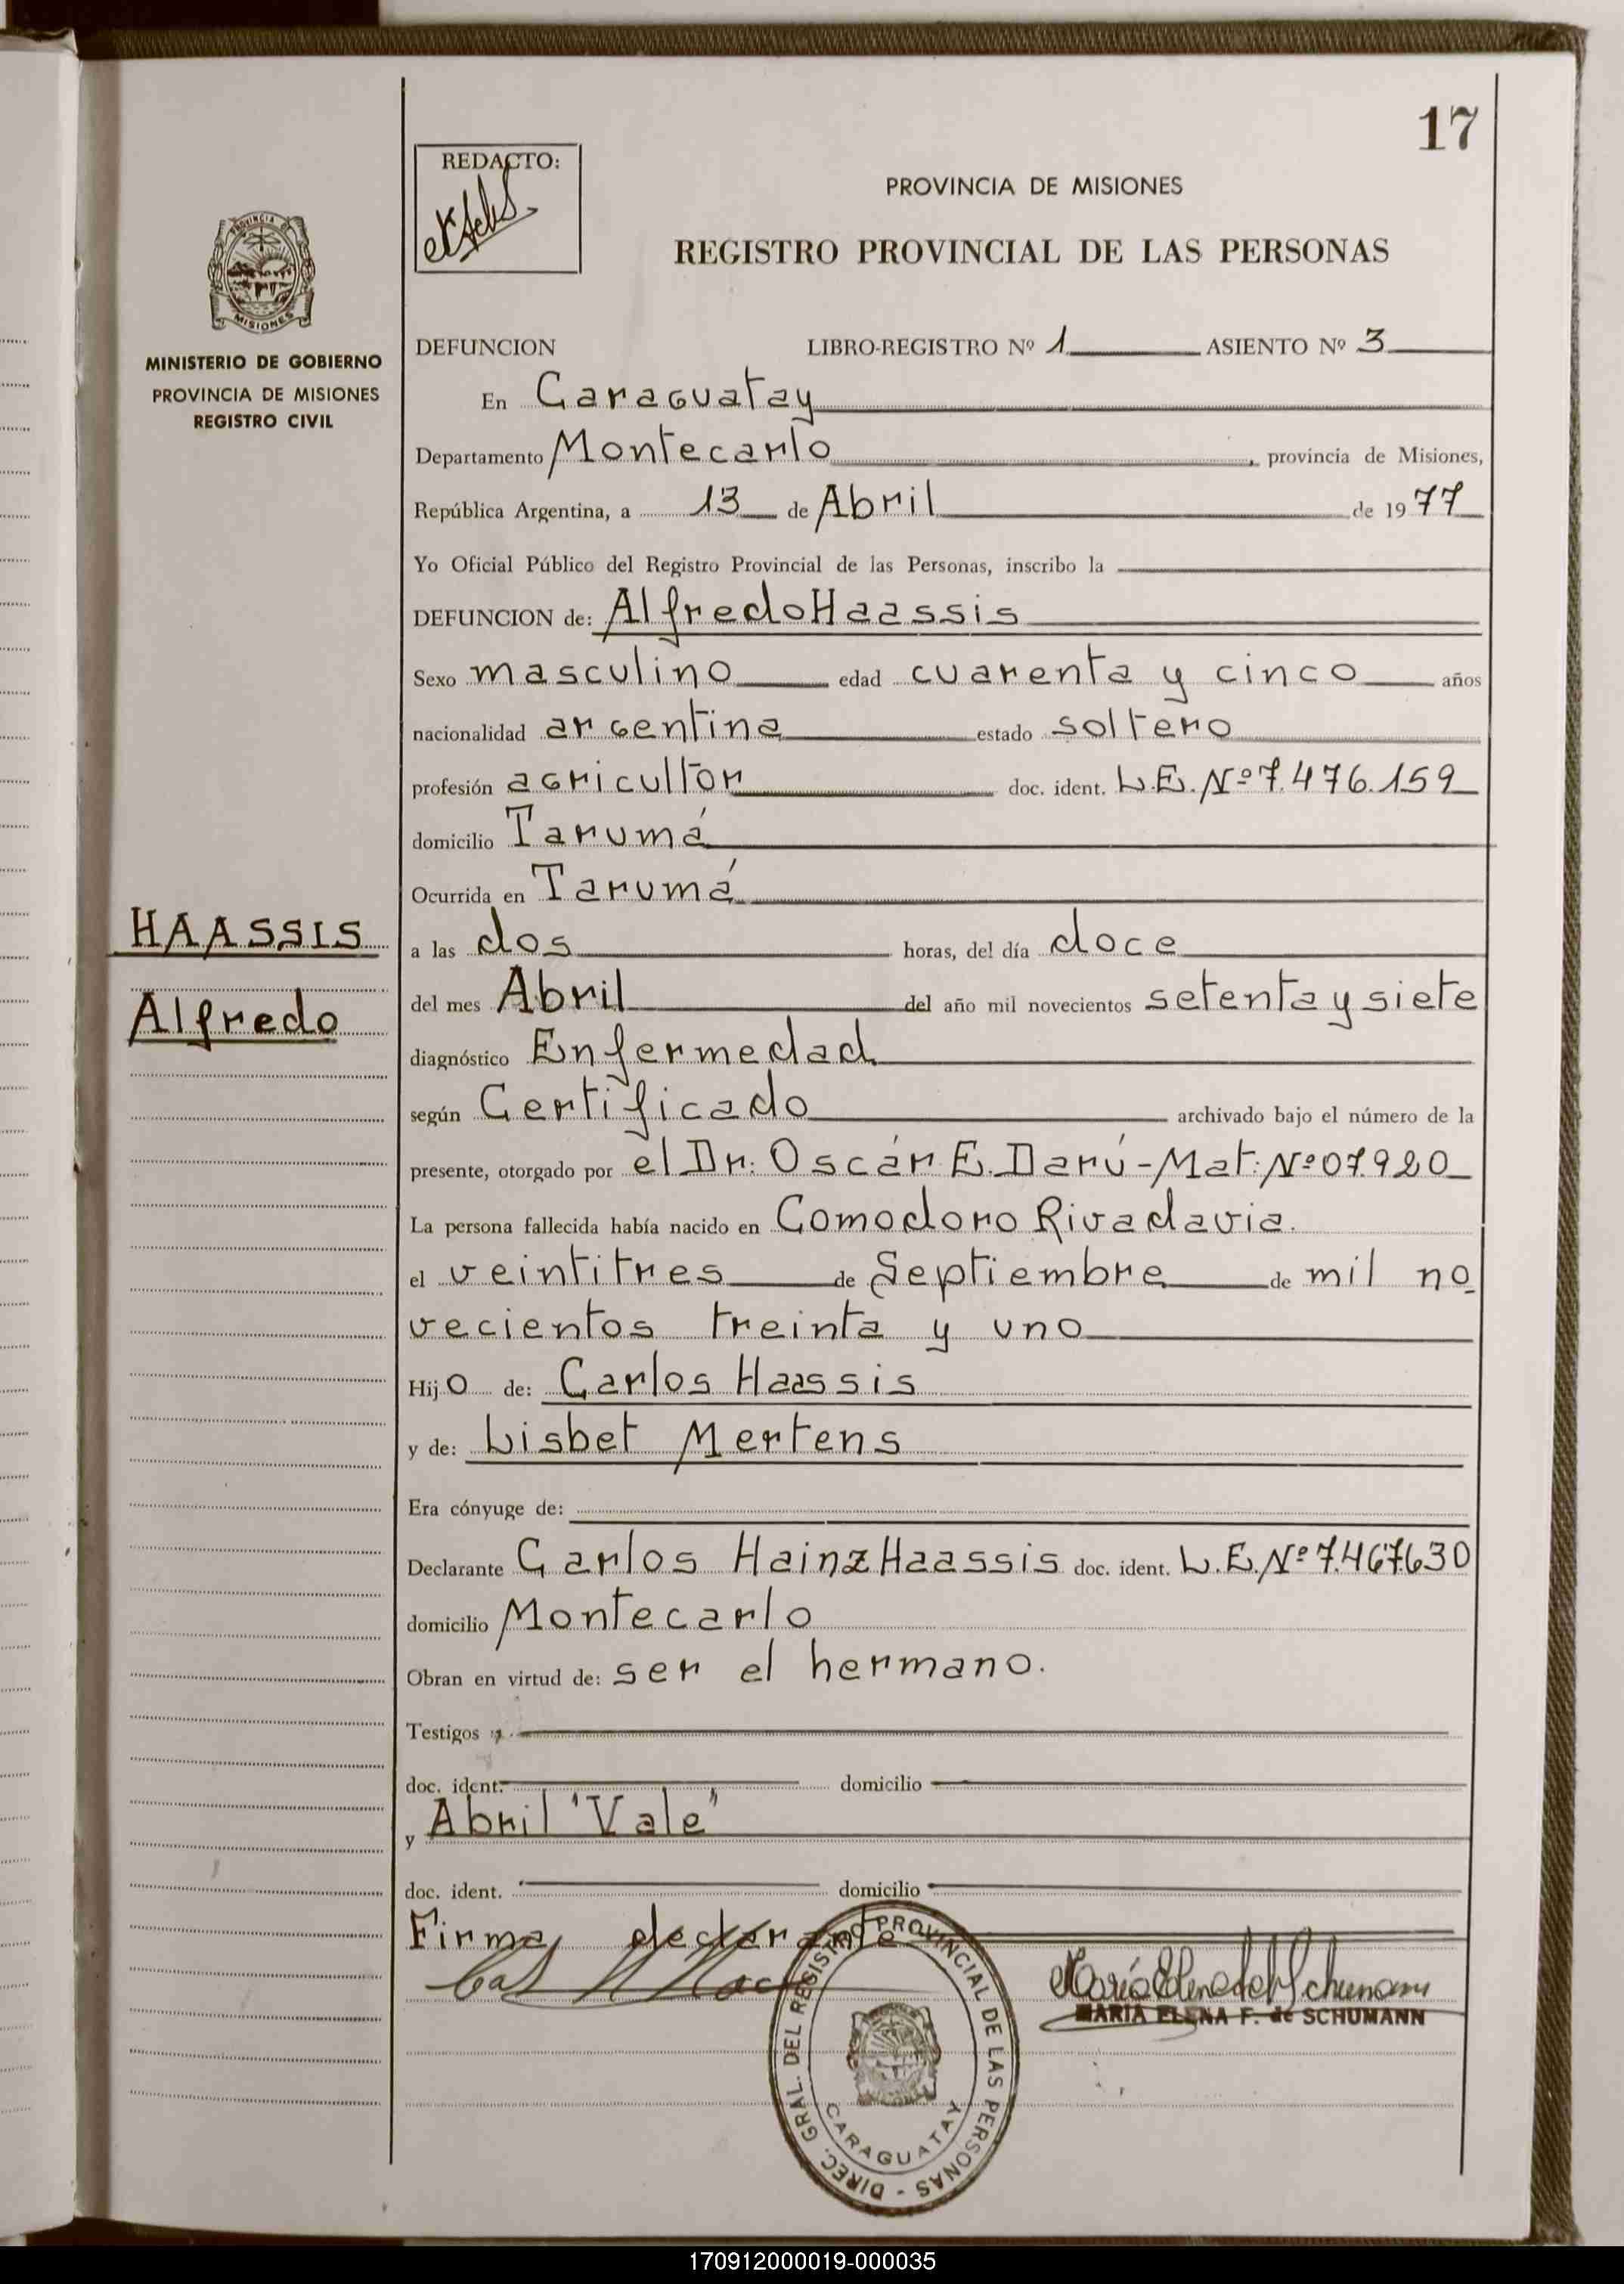 17
REDACTO:
PROVINCIA DE MISIONES
REGISTRO PROVINCIAL DE LAS PERSONAS
PROVINCIA DE
MISIONES
MINISTERIO DE GOBIERNO
PROVINCIA DE MISIONES
REGISTRO CIVIL
DEFUNCION LIBRO-REGISTRO Nº 1 ASIENTO Nº 3
En Caraguatay
Departamento Montecarlo, provincia de Misiones,
República Argentina, a 13 de Abril de 1977
Yo Oficial Público del Registro Provincial de las Personas, inscribo la
DEFUNCION de: Alfredo Haassis
Sexo masculino edad cuarenta y cinco años
nacionalidad argentina estado soltero
profesión agricultor doc. ident. L.E. Nº 7.476.159
domicilio Tarumá
Ocurrida en Tarumá
HAASSIS
Alfredo
a las dos horas, del día doce
del mes Abril del año mil novecientos setenta y siete
diagnóstico Enfermedad
según Certificado archivado bajo el número de la
presente, otorgado por el Dr. Oscár E. Darú - Mat: Nº 07.920
La persona fallecida había nacido en Comodoro Rivadavia.
el veintitres de Septiembre de mil no
vecientos treinta y uno
Hijo de: Carlos Haassis
y de: Lisbet Mertens
Era cónyuge de:
Declarante Carlos Hainz Haassis doc. ident. L.E. Nº 7.467.630
domicilio Montecarlo
Obran en virtud de: ser el hermano.
Testigos
doc. ident. domicilio
y Abril "Vale"
doc. ident. domicilio
Firma declarante
María Elena F. de Schumann
MARIA ELENA F. de SCHUMANN
DIREC. GRAL. DEL REGISTRO PROVINCIAL DE LAS PERSONAS -
CARAGUATAY
170912000019-000035